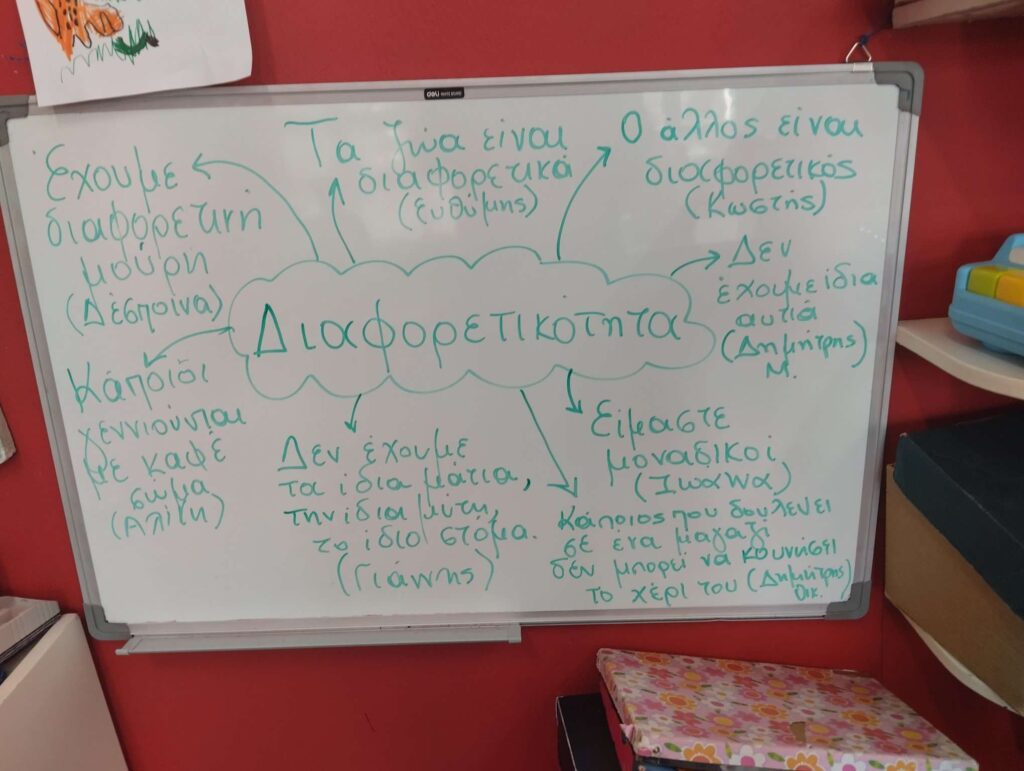 deli
Τα ζώα είναι
διαφορετικά
(Ευθύμης)
Ο άλλος είναι
διαφορετικός
(Κωστής)
Έχουμε
διαφορετική
μούρη
(Δέσποινα)
Δεν
έχουμε ίδια
αυτιά
(Δημήτρης)
Μ.
Διαφορετικότητα
Κάποιοι
γεννιούνται
με καφέ
σώμα
Δεν έχουμε
τα ίδια μάτια,
την ίδια μύτη,
το ίδιο στόμα.
(Γιάννης)
Είμαστε
μοναδικοί
(Ιωάννα)
Κάποιος που δουλεύει
σε ένα μαγαζί
δεν μπορεί να κουνήσει
το χέρι του (Δημήτρης)
Οικ.